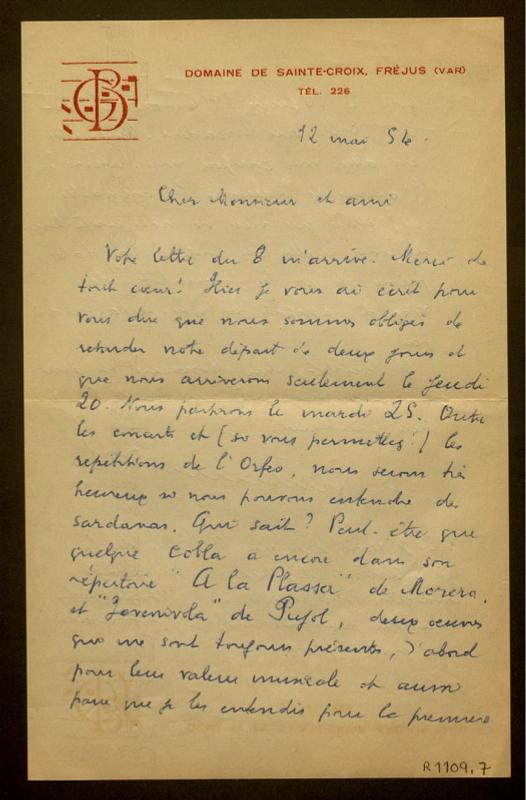 DOMAINE DE SAINTE-CROIX, FRÉJUS (VAR)
TÉL. 226
12 mai 54.
Cher Monsieur et ami
Votre lettre du 8 m'arrive. Merci de
tout cœur! Hier je vous ai écrit pour
vous dire que nous sommes obligés de
retarder notre départ de deux jours et
que nous arriverons seulement le jeudi
20. Nous partirons le mardi 25. Outre
les concerts et (si vous permettez!) les
répétitions de l'Orfeo, nous serons très
heureux si nous pouvons entendre des
sardanas. Qui sait? Peut-être que
quelque cobla a encore dans son
répertoire "A la Plassa" de Morera,
et "Jovenívola" de Pujol, deux œuvres
que me sont toujours présentes, d'abord
pour leur valeur musicale et aussi
parce que je les entendis pour la première
R 1109,7